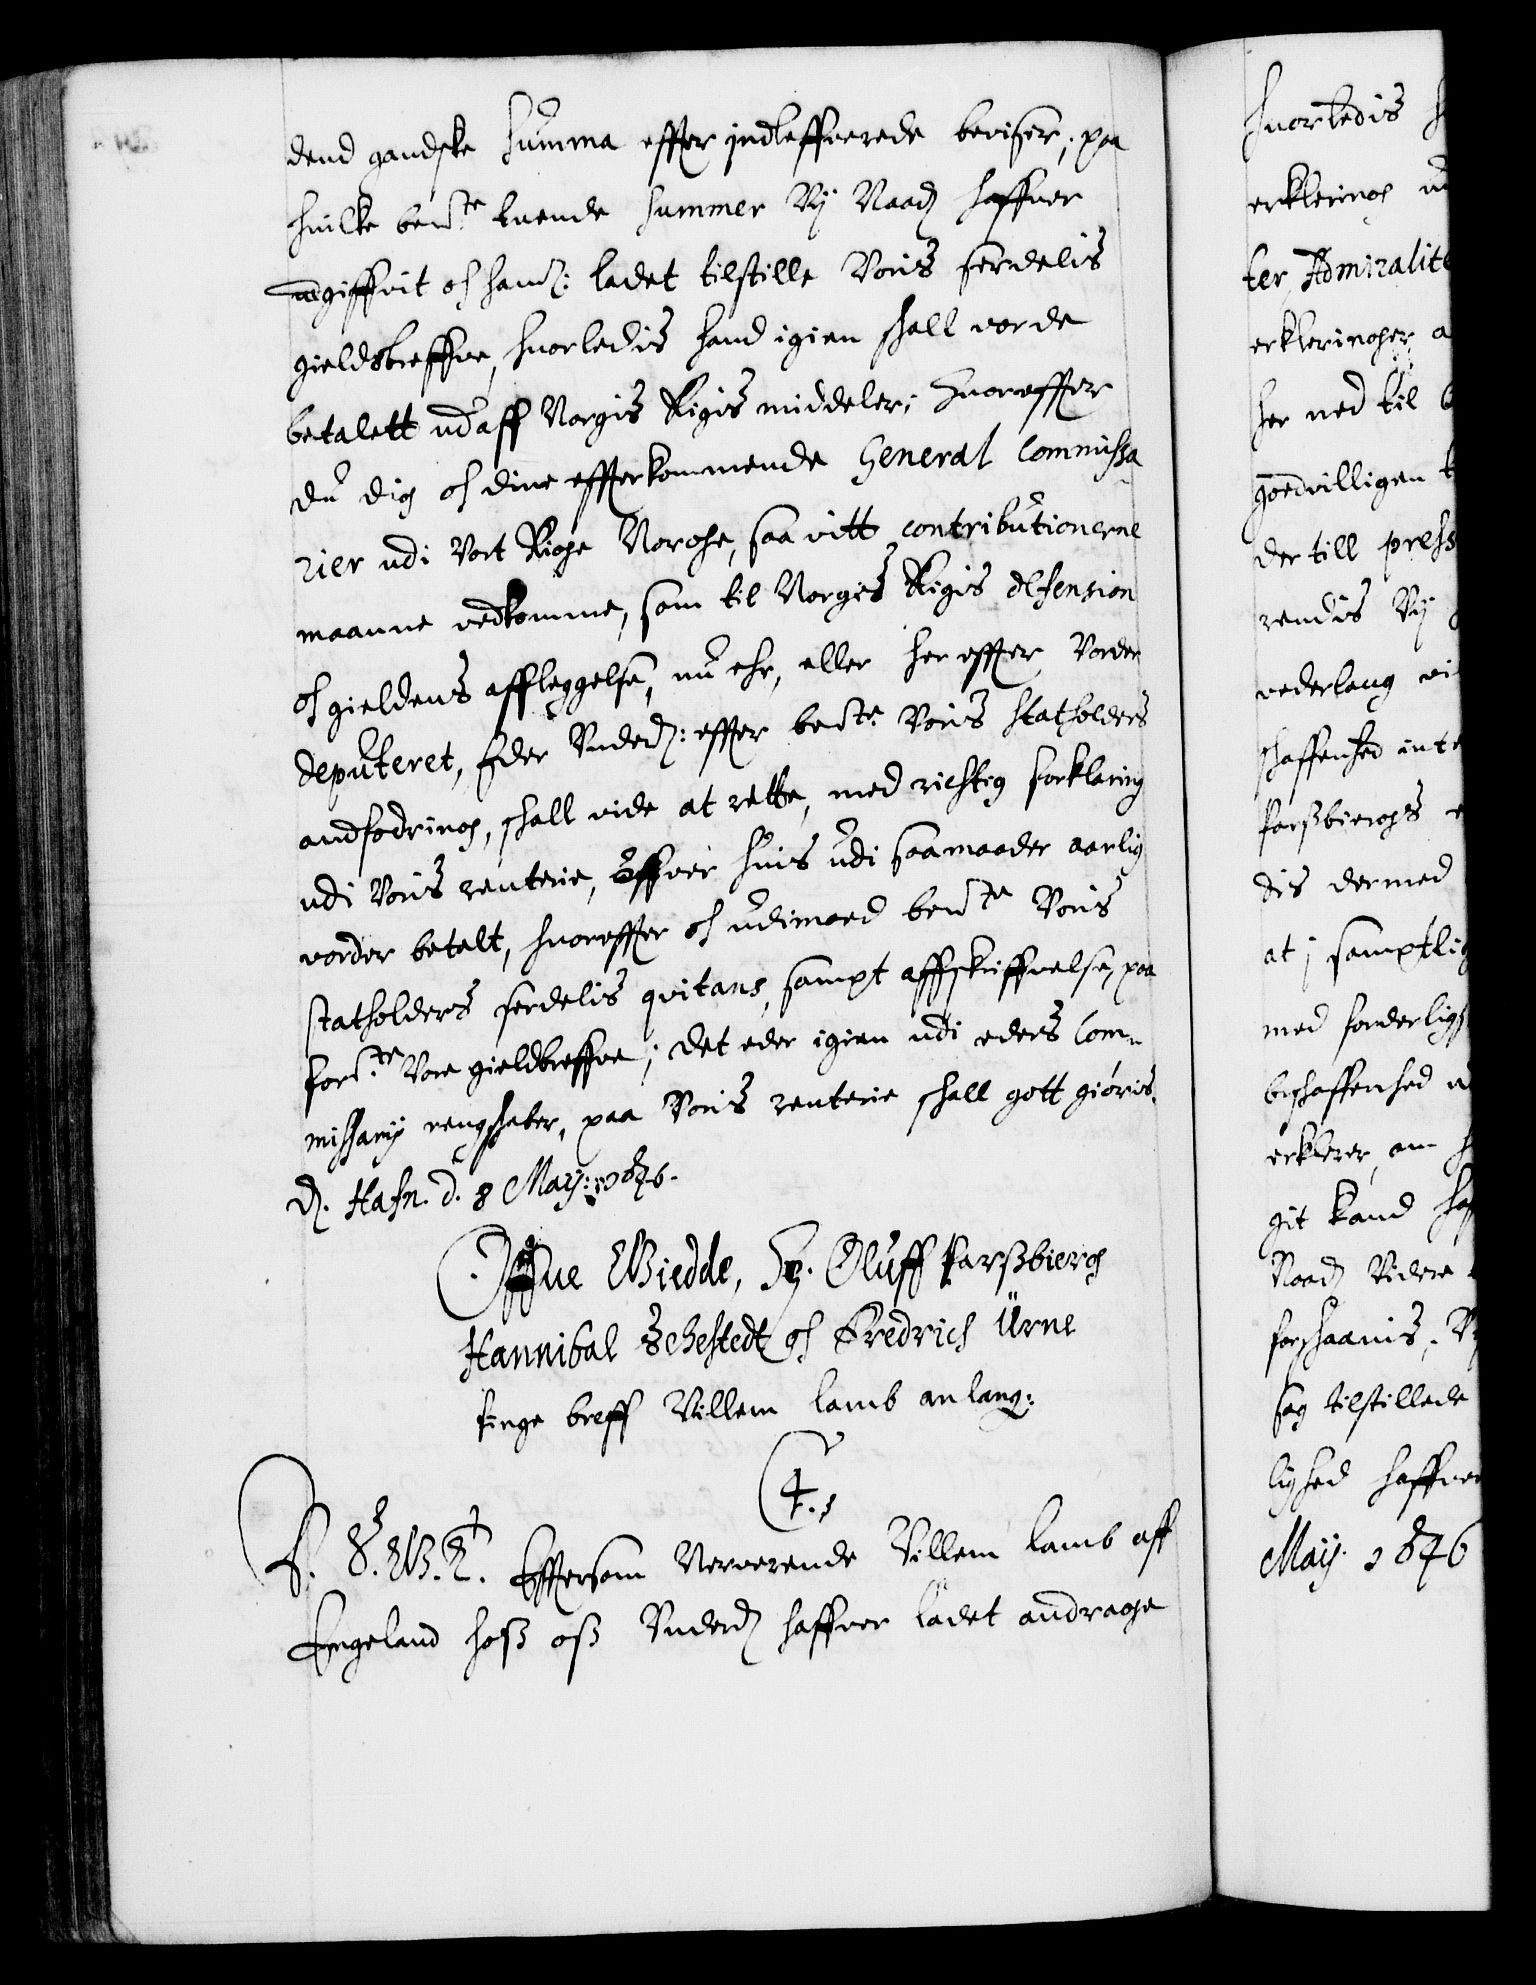 dend gandske Summa effter indleffverede beviser, paa
huilke bem.te tuende Summer Vij Naad: haffver
udgiffvit oc han: ladet tilstille Voris serdelis
gieldsbreffve, huorledis hand igien skall vorde
betalett ud aff Norgis Rigis middeler; Huoreffter
du dig oc dine effterkommende General Commissa-
rier udi Vort Rige Norge, saa vitt contributionerne
maanne vedkomme, som til Norgis Rigis defension
oc gieldens affleggelse, nu ehr, eller her effter vorder
deputeret, Eder Underd: effter bem.te Voris Statholders
andfodring, skall vide at rette, med richtig forklaring
udi Voris renterie, Offver huis udi saamaader aarlig
vorder betalt, huoreffter oc udimoed bem.te Voris
Statholders serdelis qvitans, sampt affskriffvelse, paa
for.te Vore gieldbreffve; det eder igien udi eders Com-
missarij rengskaber, paa Voris renterie skall gott giøris.
D. Hafn. d. 8 Maij: 1646.
Offue Giedde, Hr. Oluff Parsbierg
Hannibal Sehestedt oc Fredrich Urne
finge breff Villem Lamb anlang:
C. 4.
Effersom Nerverende Villem Lamb aff
Engeland hoß oß Underd: haffver ladet andrage
huorledis
erklering
ter, Admiralite
erkleringer, a
her ned til
goedvilligen
der till press
rendis Vij
vederlaug
skaffenhed inte
Parßbiergs
dis dermed
at i samptlig
med forderligs
beskaffenhed
erklerer, om
git kand
Naad: Videre
forskaanis, V
sag tilstillede
lighed haffver
Maij. 1646